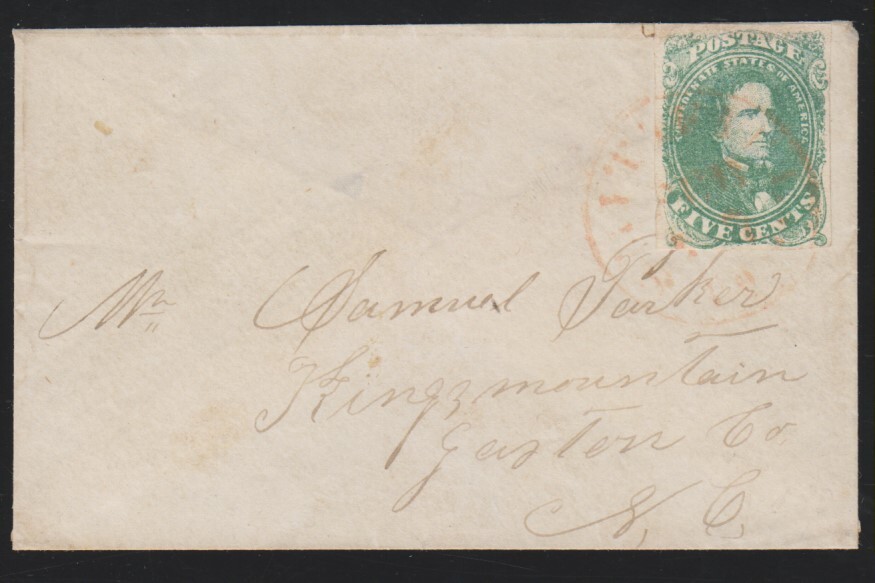 POSTAGE
CONFEDERATE STATES OF AMERICA
FIVE CENTS
Mr Samuel Parker
Kingsmountain
Gaston Co
N, C,